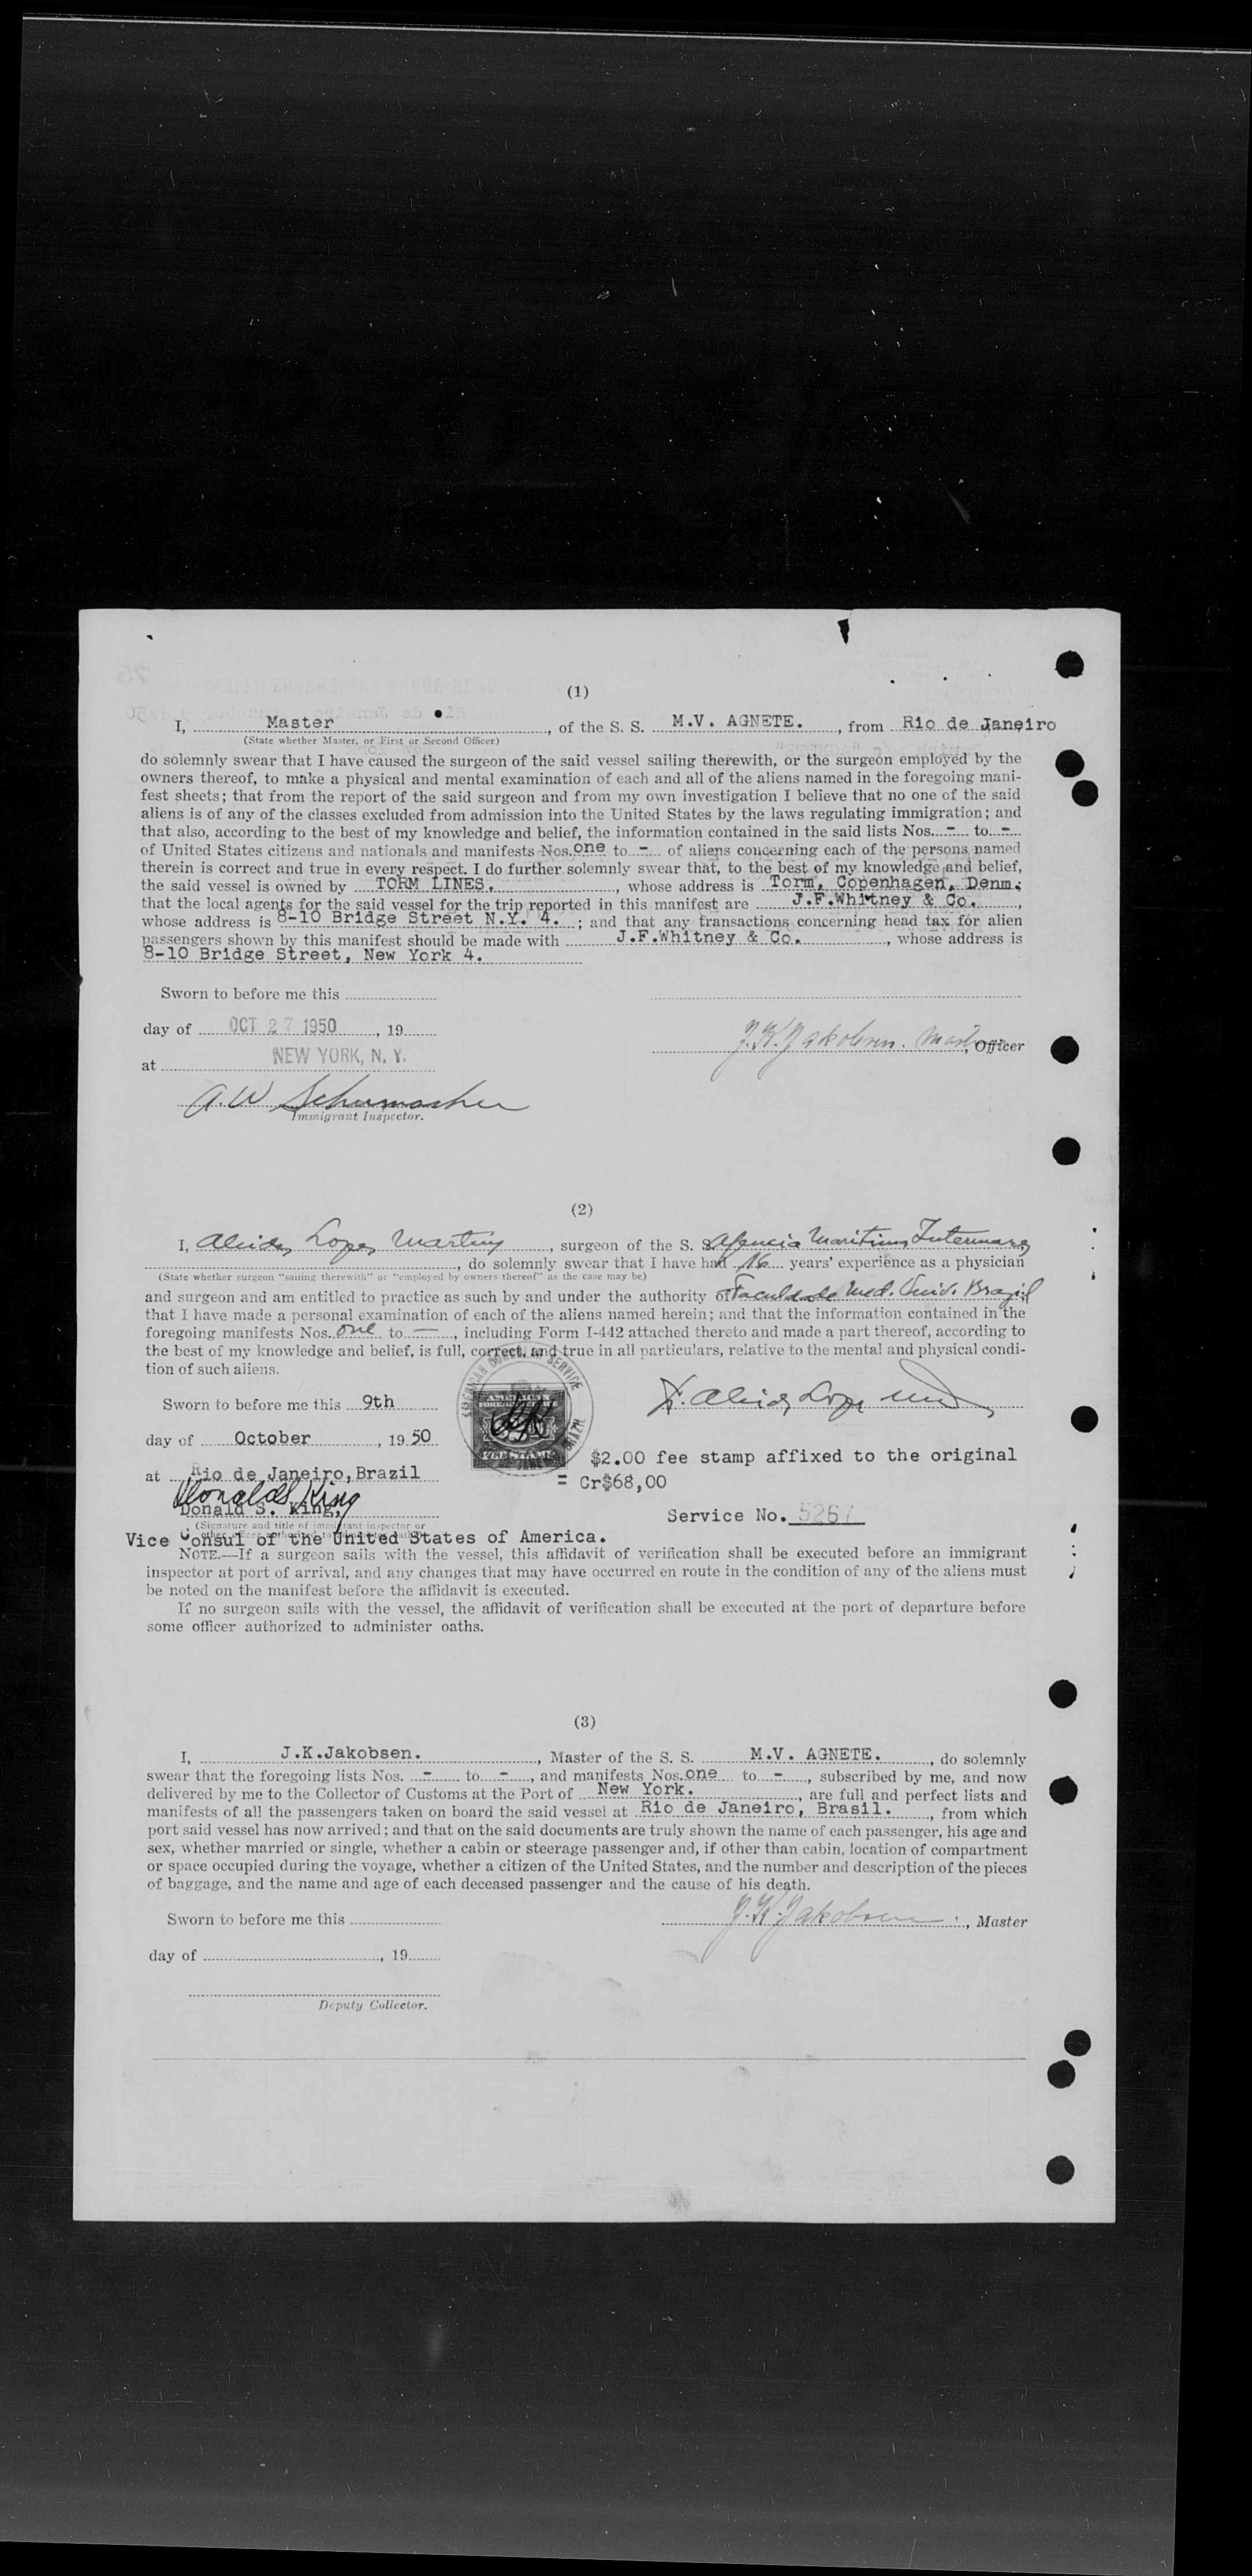 (1)
I, Master, of the S. S. M.V. AGNETE., from Rio de Janeiro
(State whether Master, or First or Second Officer)
do solemnly swear that I have caused the surgeon of the said vessel sailing therewith, or the surgeon employed by the
owners thereof, to make a physical and mental examination of each and all of the aliens named in the foregoing mani-
fest sheets; that from the report of the said surgeon and from my own investigation I believe that no one of the said
aliens is of any of the classes excluded from admission into the United States by the laws regulating immigration; and
that also, according to the best of my knowledge and belief, the information contained in the said lists Nos. - to -
of United States citizens and nationals and manifests Nos. one to - of aliens concerning each of the persons named
therein is correct and true in every respect. I do further solemnly swear that, to the best of my knowledge and belief,
the said vessel is owned by TORM LINES., whose address is Torm, Copenhagen, Denm.;
that the local agents for the said vessel for the trip reported in this manifest are J.F.Whitney & Co.,
whose address is 8-10 Bridge Street N.Y. 4. ; and that any transactions concerning head tax for alien
passengers shown by this manifest should be made with J.F.Whitney & Co., whose address is
8-10 Bridge Street, New York 4.
Sworn to before me this
day of OCT 27 1950, 19
J.K. Jakobsen. Master, Officer
at NEW YORK, N. Y.
A. W Schumacher
Immigrant Inspector.
(2)
I, Alcides Lopes Martins, surgeon of the S. S. Agencia Maritima Intermares
, do solemnly swear that I have had 16 years' experience as a physician
(State whether surgeon "sailing therewith" or "employed by owners thereof" as the case may be)
and surgeon and am entitled to practice as such by and under the authority of Faculdade Med. Univ. Brazil
that I have made a personal examination of each of the aliens named herein; and that the information contained in the
foregoing manifests Nos. one to —, including Form I-442 attached thereto and made a part thereof, according to
the best of my knowledge and belief, is full, correct, and true in all particulars, relative to the mental and physical condi-
tion of such aliens.
AMERICAN CONSULAR SERVICE
Sworn to before me this 9th
day of October, 19 50
FEE STAMP
$2.00 fee stamp affixed to the original
at Rio de Janeiro, Brazil
= Cr$68,00
Donald S King
Donald S. King,
Service No. 5267
(Signature and title of immigrant inspector or
Vice Consul of the United States of America.
NOTE.—If a surgeon sails with the vessel, this affidavit of verification shall be executed before an immigrant
inspector at port of arrival, and any changes that may have occurred en route in the condition of any of the aliens must
be noted on the manifest before the affidavit is executed.
If no surgeon sails with the vessel, the affidavit of verification shall be executed at the port of departure before
some officer authorized to administer oaths.
(3)
I, J.K.Jakobsen., Master of the S. S. M.V. AGNETE., do solemnly
swear that the foregoing lists Nos. - to -, and manifests Nos. one to -, subscribed by me, and now
delivered by me to the Collector of Customs at the Port of New York., are full and perfect lists and
manifests of all the passengers taken on board the said vessel at Rio de Janeiro, Brasil., from which
port said vessel has now arrived; and that on the said documents are truly shown the name of each passenger, his age and
sex, whether married or single, whether a cabin or steerage passenger and, if other than cabin, location of compartment
or space occupied during the voyage, whether a citizen of the United States, and the number and description of the pieces
of baggage, and the name and age of each deceased passenger and the cause of his death.
Sworn to before me this
J.K. Jakobsen., Master
day of , 19
Deputy Collector.